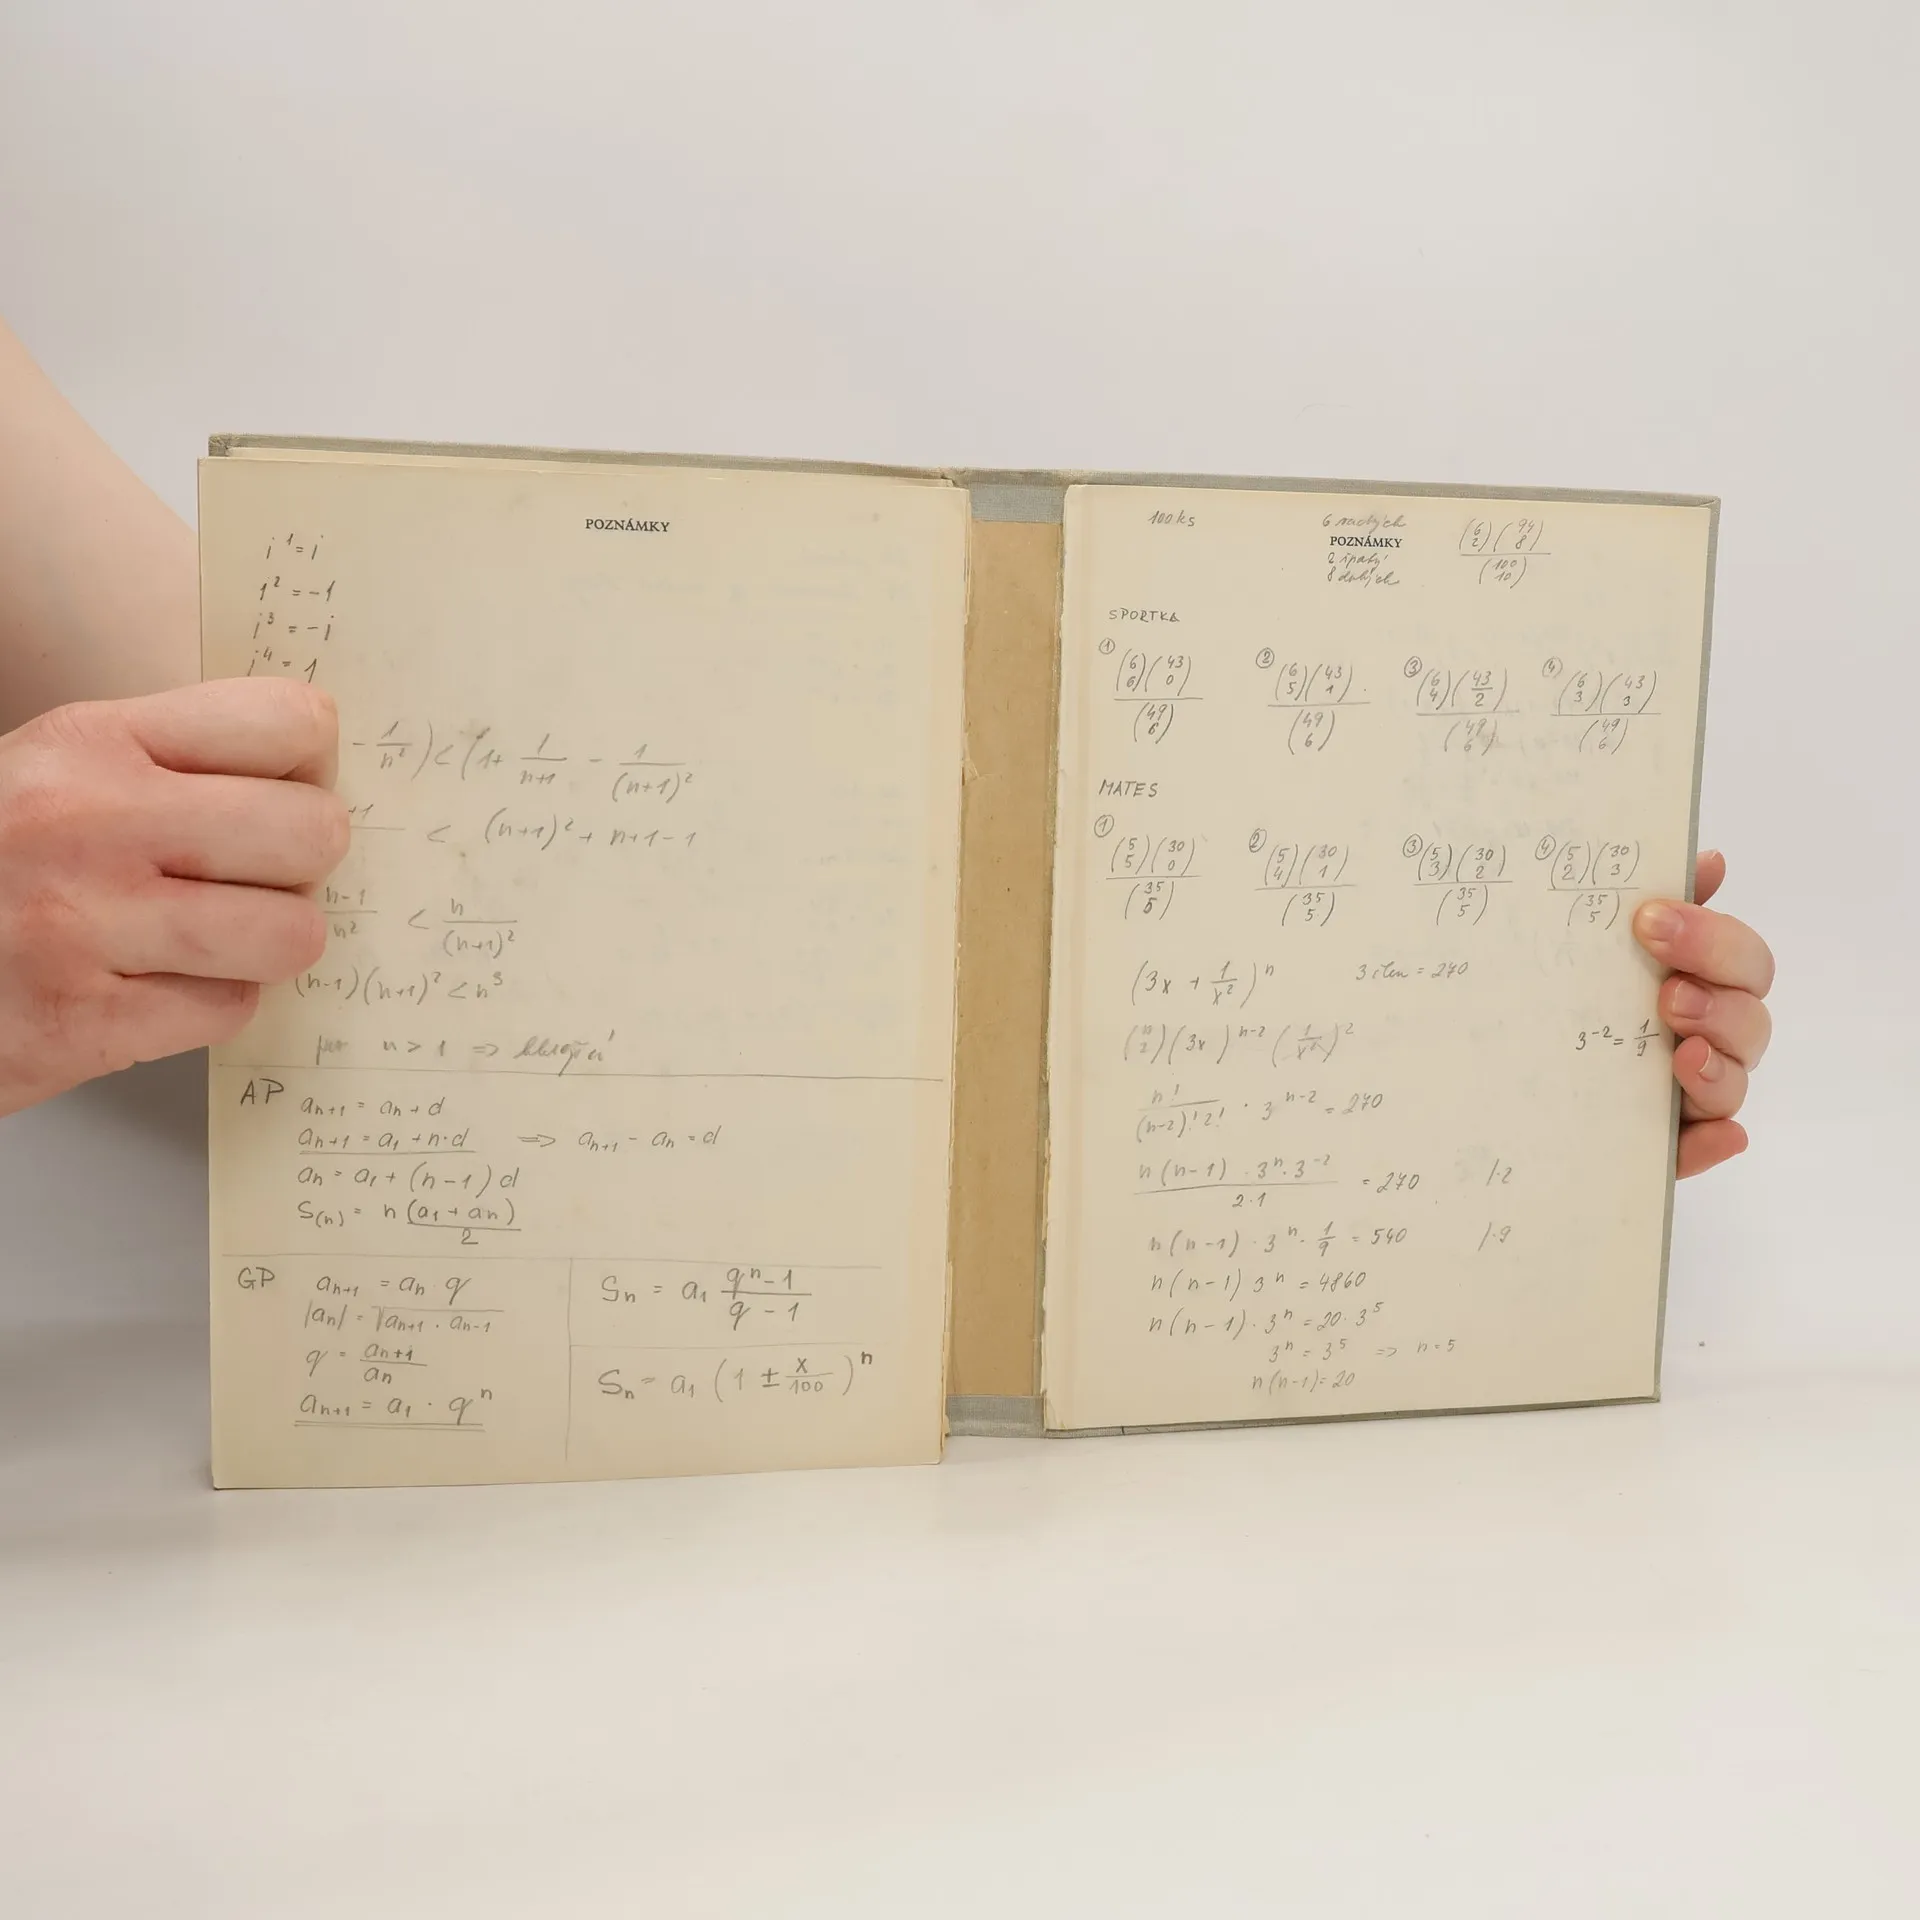 POZNÁMKY
i¹ = i
i² = -1
i³ = -i
i⁴ = 1
- 1/n² ) < (1 + 1/(n+1) - 1/(n+1)²
+1 < (n+1)² + n+1-1
(n-1)/n² < n/(n+1)²
(n-1)(n+1)² < n³
n > 1 ⇒
AP
aₙ₊₁ = aₙ + d
aₙ₊₁ = a₁ + n·d ⇒ aₙ₊₁ - aₙ = d
aₙ = a₁ + (n-1) d
S₍ₙ₎ = n (a₁ + aₙ)/2
GP
aₙ₊₁ = aₙ · q
|aₙ| = √(aₙ₊₁ · aₙ₋₁)
q = aₙ₊₁/aₙ
aₙ₊₁ = a₁ · qⁿ
Sₙ = a₁ (qⁿ - 1)/(q - 1)
Sₙ = a₁ (1 ± x/100)ⁿ
100 ks 6 (6 2)(94 8)/(100 10)
POZNÁMKY
2
8
SPORTKA
① (6 6)(43 0)/(49 6) ② (6 5)(43 1)/(49 6) ③ (6 4)(43 2)/(49 6) ④ (6 3)(43 3)/(49 6)
MATES
① (5 5)(30 0)/(35 5) ② (5 4)(30 1)/(35 5) ③ (5 3)(30 2)/(35 5) ④ (5 2)(30 3)/(35 5)
(3x + 1/x²)ⁿ 3 člen = 270
(n 2)(3x)ⁿ⁻² (1/x²)² 3⁻² = 1/9
n!/((n-2)! 2!) · 3ⁿ⁻² = 270
n(n-1) · 3ⁿ · 3⁻²/(2·1) = 270 /·2
n(n-1) · 3ⁿ · 1/9 = 540 /·9
n(n-1) 3ⁿ = 4860
n(n-1) · 3ⁿ = 20 · 3⁵
3ⁿ = 3⁵ ⇒ n = 5
n(n-1) = 20